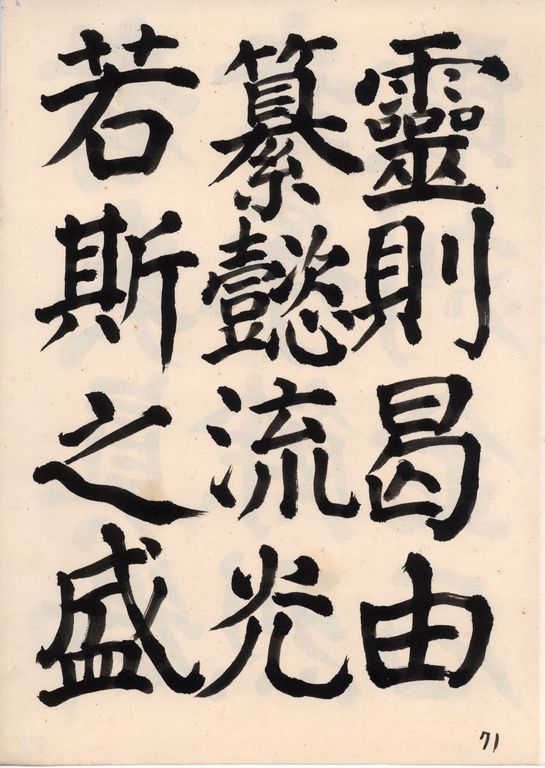 靈則曷由
纂懿流光
若斯之盛
71